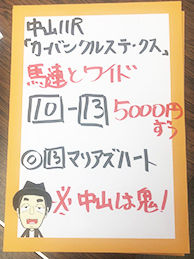 中山11R
「カーバンクルステークス」
馬連とワイド
10-13 5000円
ずつ
◎13マリアズハート
※中山は鬼!